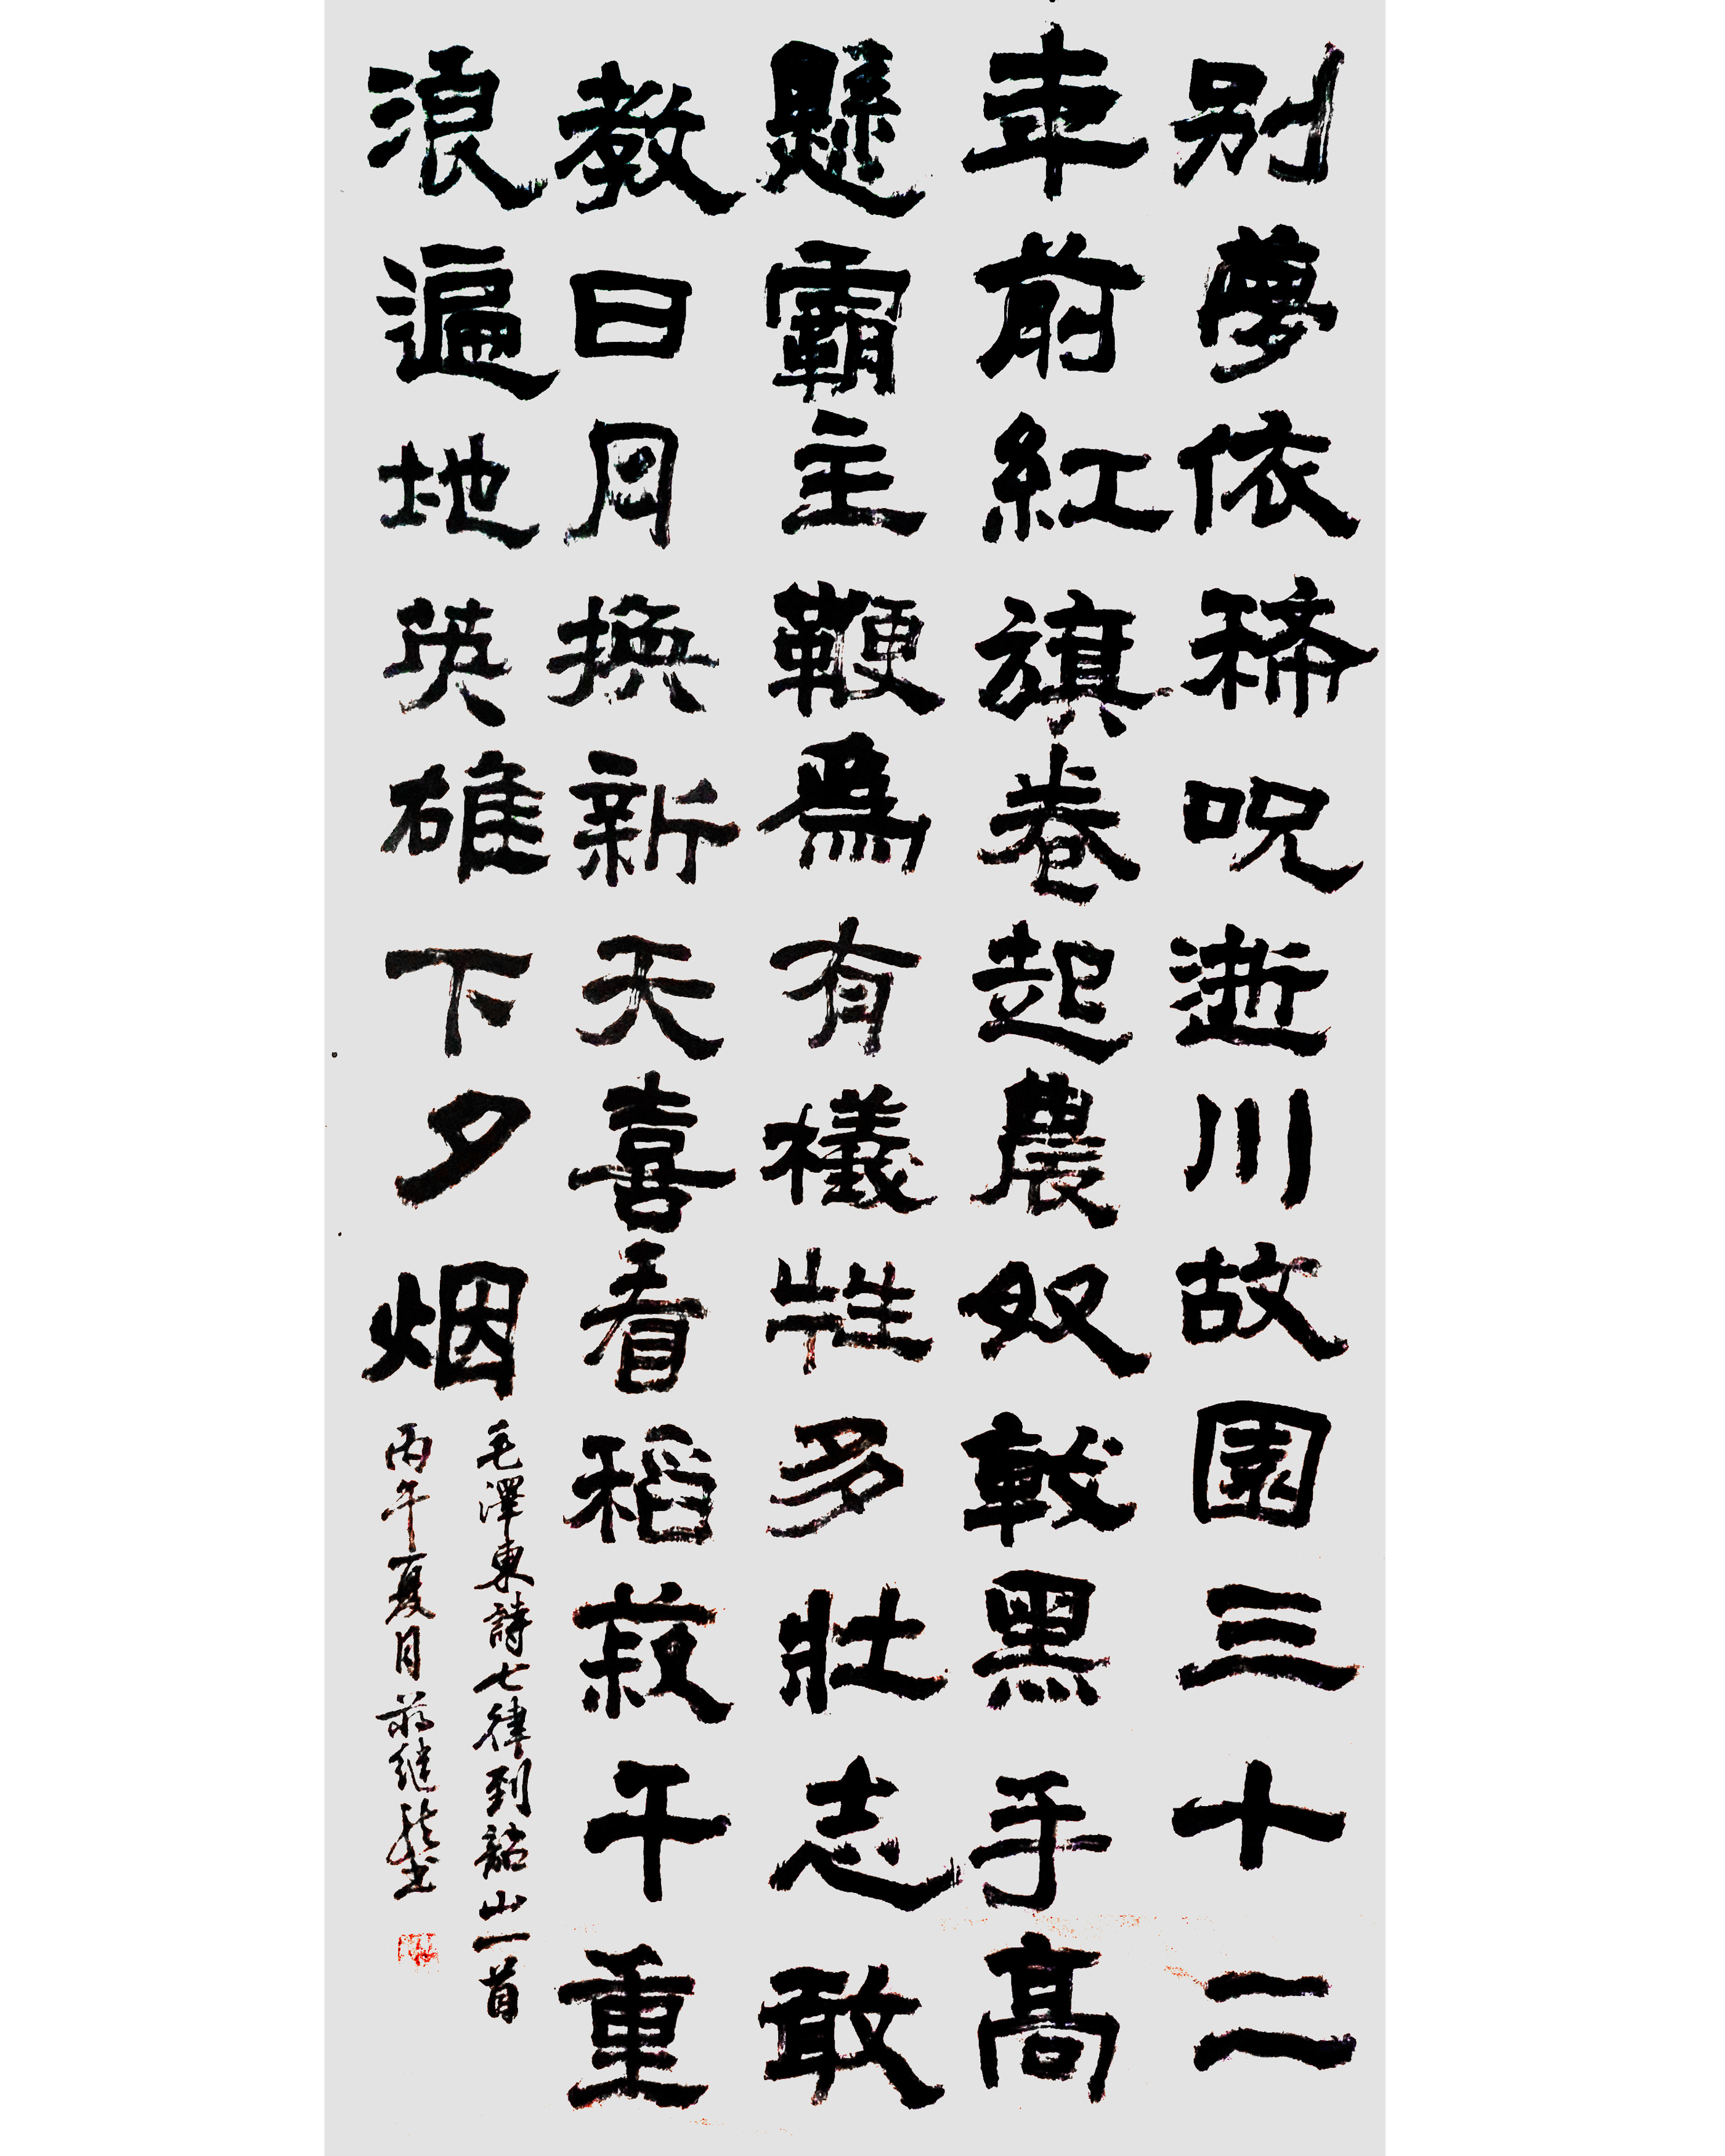 别夢依稀呪逝川故園三十二
年前紅旗卷起農奴戟黑手高
懸霸主鞭爲有犧牲多壯志敢
教日月換新天喜看稻菽千重
浪遍地英雄下夕烟
毛澤東詩七律到韶山一首
丙午夏月蒋继书